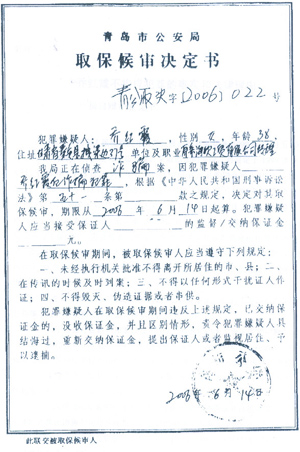 青岛市公安局
取保候审决定书
字[2006]022号
犯罪嫌疑人：乔红霞，性别女，年龄38，
住址 单位及职业
我局正在侦查诈骗案，因犯罪嫌疑人
，根据《中华人民共和国刑事诉讼
法》第五十一条第 款之规定，决定对其取
保候审，期限从2006年6月14日起算。犯罪嫌疑
人应当接受保证人 的监督/交纳保证金
元。
在取保候审期间，被取保候审人应当遵守下列规定：
一、未经执行机关批准不得离开所居住的市、县；二、
在传讯的时候及时到案；三、不得以任何形式干扰证人作
证；四、不得毁灭、伪造证据或者串供。
犯罪嫌疑人在取保候审期间违反上述规定，已交纳保
证金的，没收保证金，并且区别情形，责令犯罪嫌疑人具
结悔过，重新交纳保证金，提出保证人或者监视居住、予
以逮捕。
2006年6月14日
此联交被取保候审人